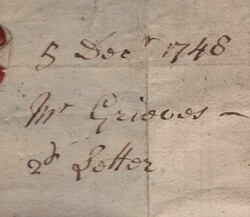 5 Decr 1748
Mr Grieves –
2d Letter